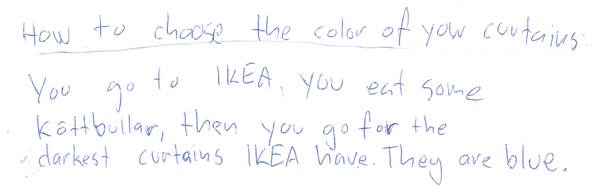 How to choose the color of your curtains:
You go to IKEA, you eat some
köttbullar, then you go for the
darkest curtains IKEA have. They are blue.